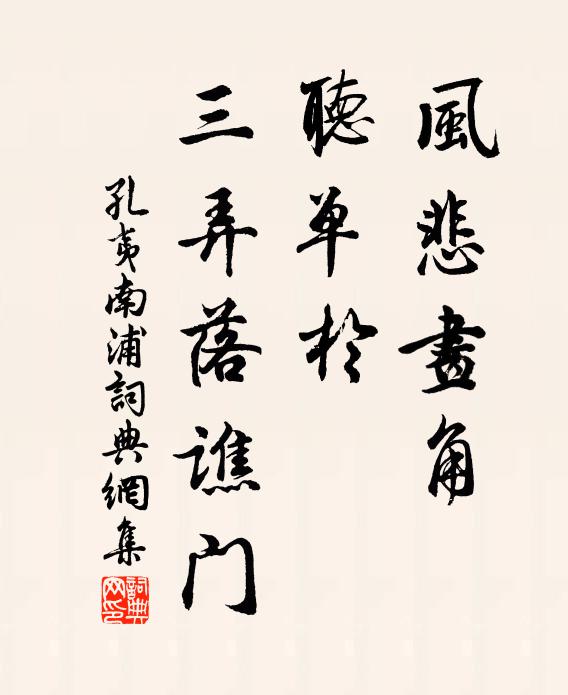 風悲畫角
聽单於
三弄落譙門
孔夷南浦詞典網集
詞典网印